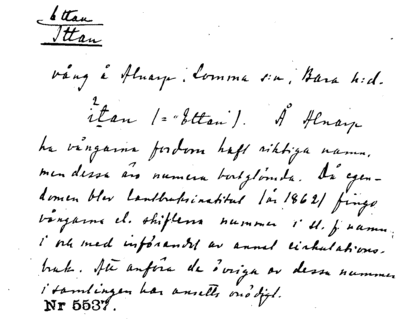 Ettan
Ittan
vång å Alnarp, Lomma s:n, Bara h:d.
itan (= "Ettan"). Å Alnarp
ha vångarna fordom haft riktiga namn,
men dessa äro numera bortglömda. Då egen-
domen blev lantbruksinstitut (år 1862) fingo
vångarna el. skiftena nummer i st. f. namn,
i och med införandet av annat cirkulations-
bruk. Att anföra de övriga av dessa nummer
i samlingen har ansetts onödigt.
Nr 5537.